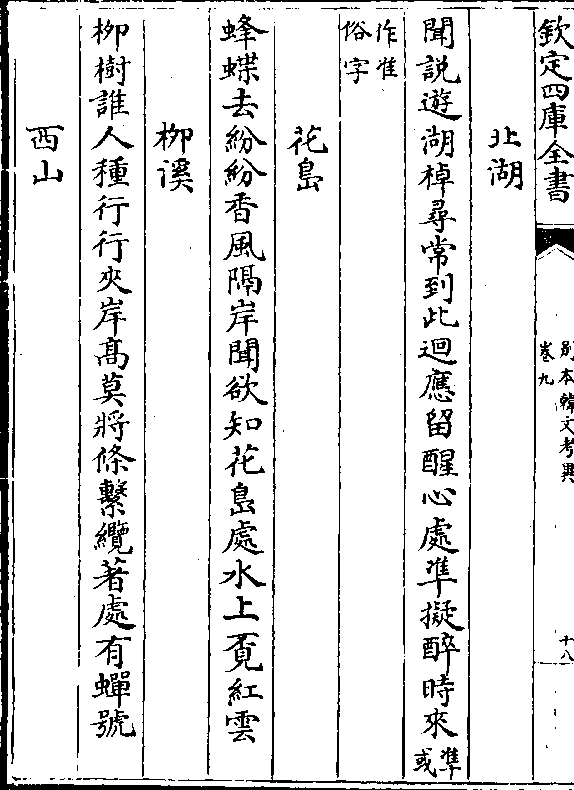 欽定四庫全書
別本韓文考異
卷九
十八
北湖
聞說遊湖棹尋常到此迴應留醒心處準擬醉時來準或
作准
俗字
花島
蜂蝶去紛紛香風隔岸聞欲知花島處水上覔紅雲
栁溪
栁樹誰人種行行夾岸髙莫將條繫纜著處有蟬號
西山